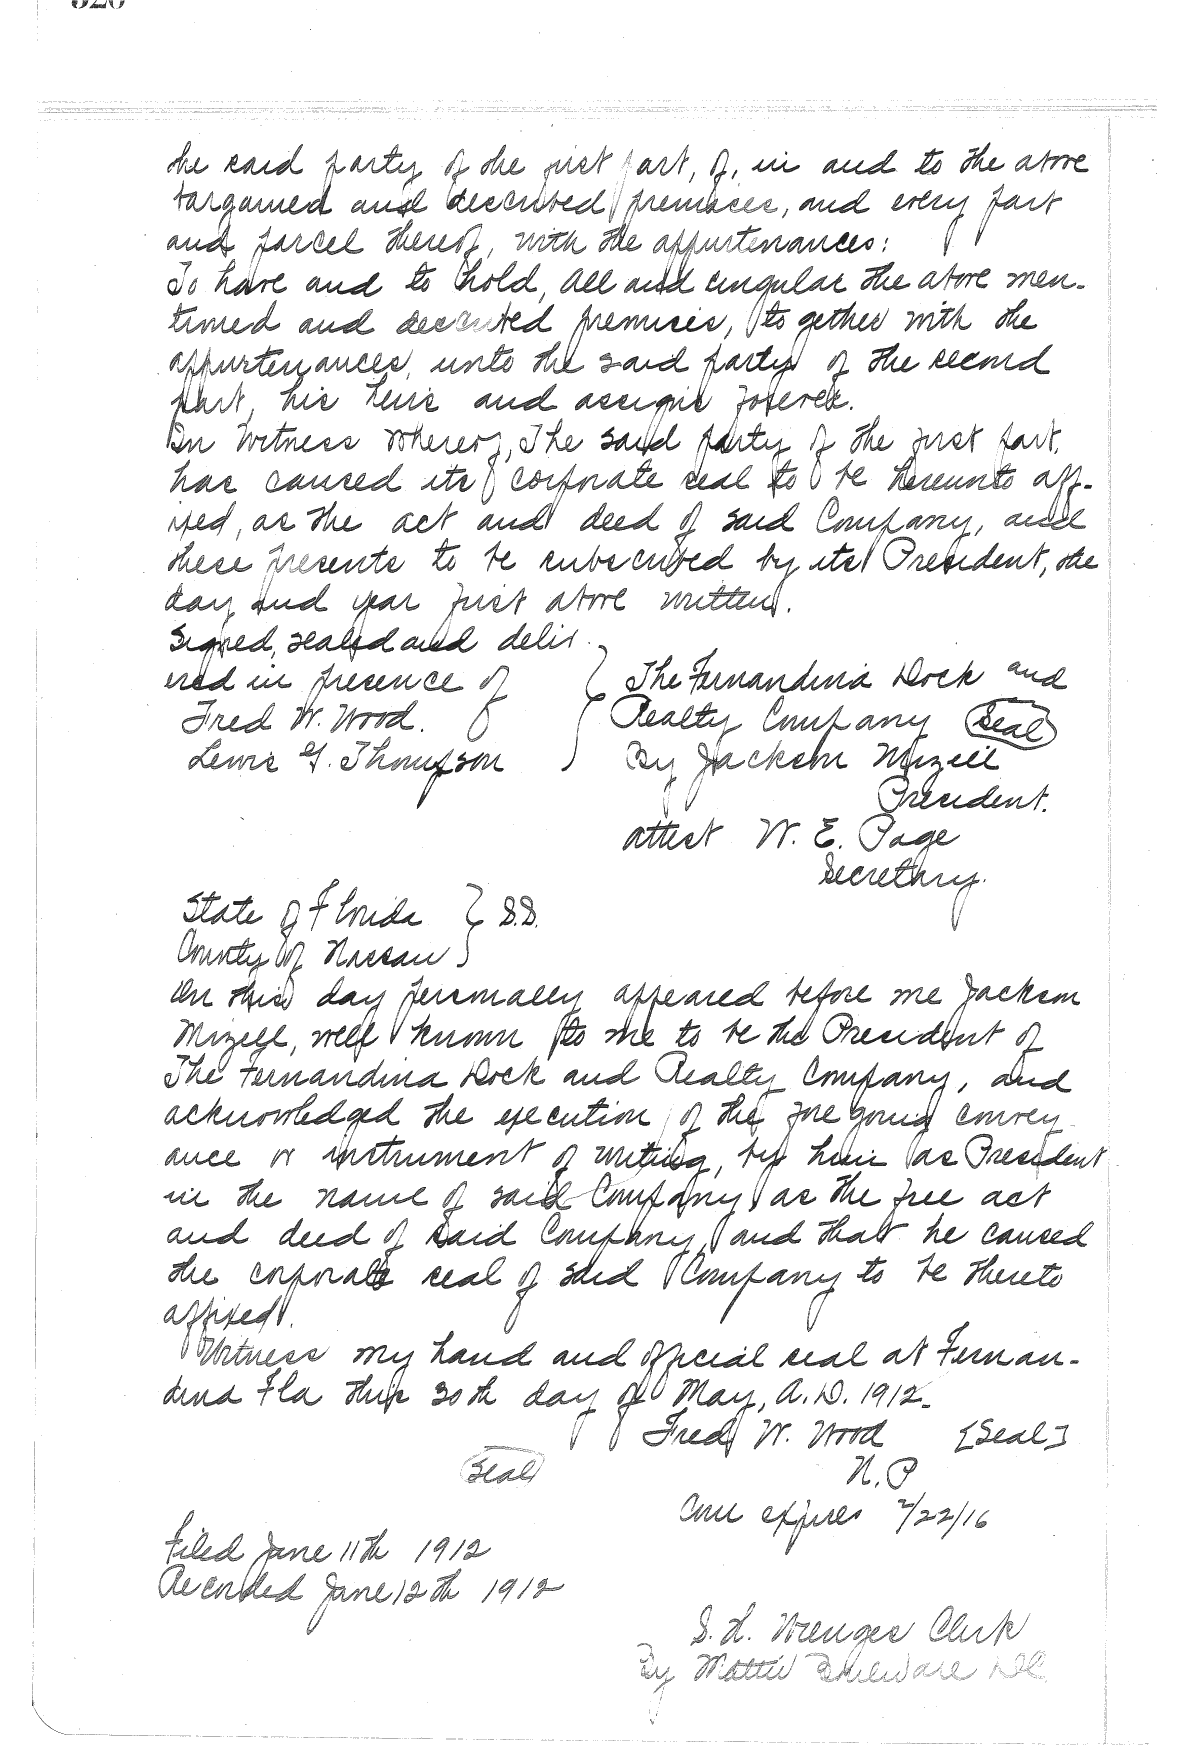 the said party of the first part, of, in and to the above
bargained and described premises, and every part
and parcel thereof, with the appurtenances:
To have and to hold, all and singular the above men-
tioned and described premises, together with the
appurtenances, unto the said party of the second
part, his heirs and assigns forever.
In Witness Whereof, The said party of the first part,
has caused its corporate seal to be hereunto aff-
ixed, as the act and deed of said Company, and
these presents to be subscribed by its President, the
day and year first above written.
Signed, sealed and deliv
ered in presence of
Fred W. Wood.
Lewis G. Thompson
The Fernandina Dock and
Realty Company Seal
By Jackson Mizell
President.
attest W. E. Page
Secretary.
State of Florida } S.S.
County of Nassau
On this day personally appeared before me Jackson
Mizell, well known to me to be the President of
The Fernandina Dock and Realty Company, and
acknowledged the execution of the foregoing convey
ance or instrument of writing, by him as President
in the name of said Company as the free act
and deed of said Company, and that he caused
the corporate seal of said Company to be thereto
affixed.
Witness my hand and official seal at Fernan-
dina Fla this 30th day of May, A.D. 1912.
Fred W. Wood [Seal]
Seal
N.P
Com expires 2/22/16
Filed June 11th 1912
Recorded June 12th 1912
Clerk
By Mattie D.C.